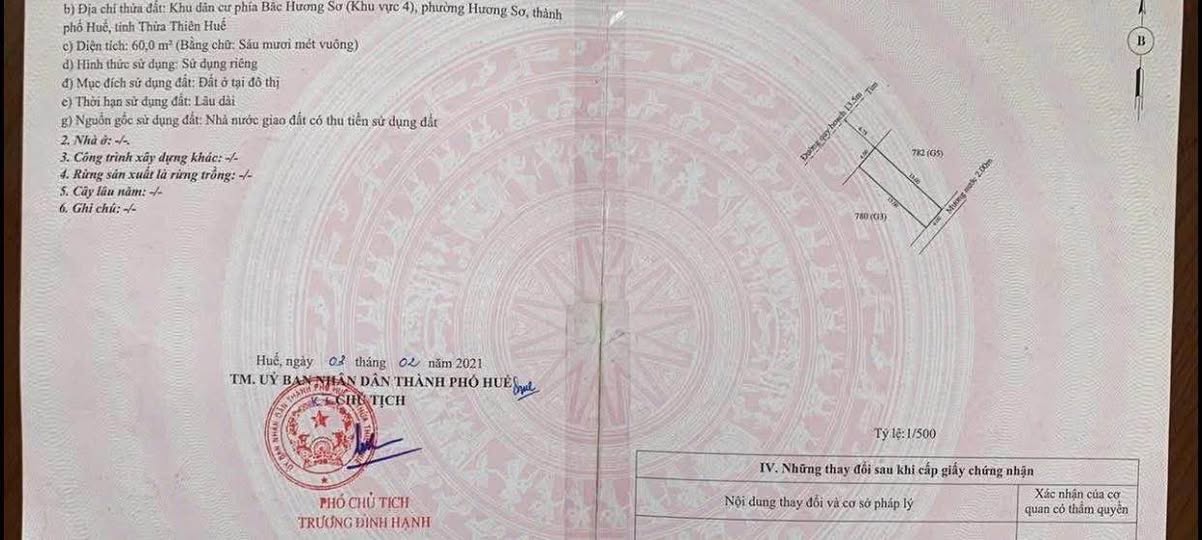 b) Địa chỉ thửa đất: Khu dân cư phía Bắc Hương Sơ (Khu vực 4), phường Hương Sơ, thành
phố Huế, tỉnh Thừa Thiên Huế
c) Diện tích: 60,0 m² (Bằng chữ: Sáu mươi mét vuông)
d) Hình thức sử dụng: Sử dụng riêng
đ) Mục đích sử dụng đất: Đất ở tại đô thị
e) Thời hạn sử dụng đất: Lâu dài
g) Nguồn gốc sử dụng đất: Nhà nước giao đất có thu tiền sử dụng đất
2. Nhà ở: -/-.
3. Công trình xây dựng khác: -/-
4. Rừng sản xuất là rừng trồng: -/-
5. Cây lâu năm: -/-
6. Ghi chú: -/-
Huế, ngày 03 tháng 02 năm 2021
TM. UỶ BAN NHÂN DÂN THÀNH PHỐ HUẾ
CHỦ TỊCH
PHÓ CHỦ TỊCH
TRƯƠNG ĐÌNH HẠNH
B
Đường quy hoạch 13.5m
Tim
4.75
4.00
782 (G5)
15.00
15.00
780 (G3)
4.00
Mương nước 2.00m
Tỷ lệ: 1/500
IV. Những thay đổi sau khi cấp giấy chứng nhận
Nội dung thay đổi và cơ sở pháp lý
Xác nhận của cơ
quan có thẩm quyền